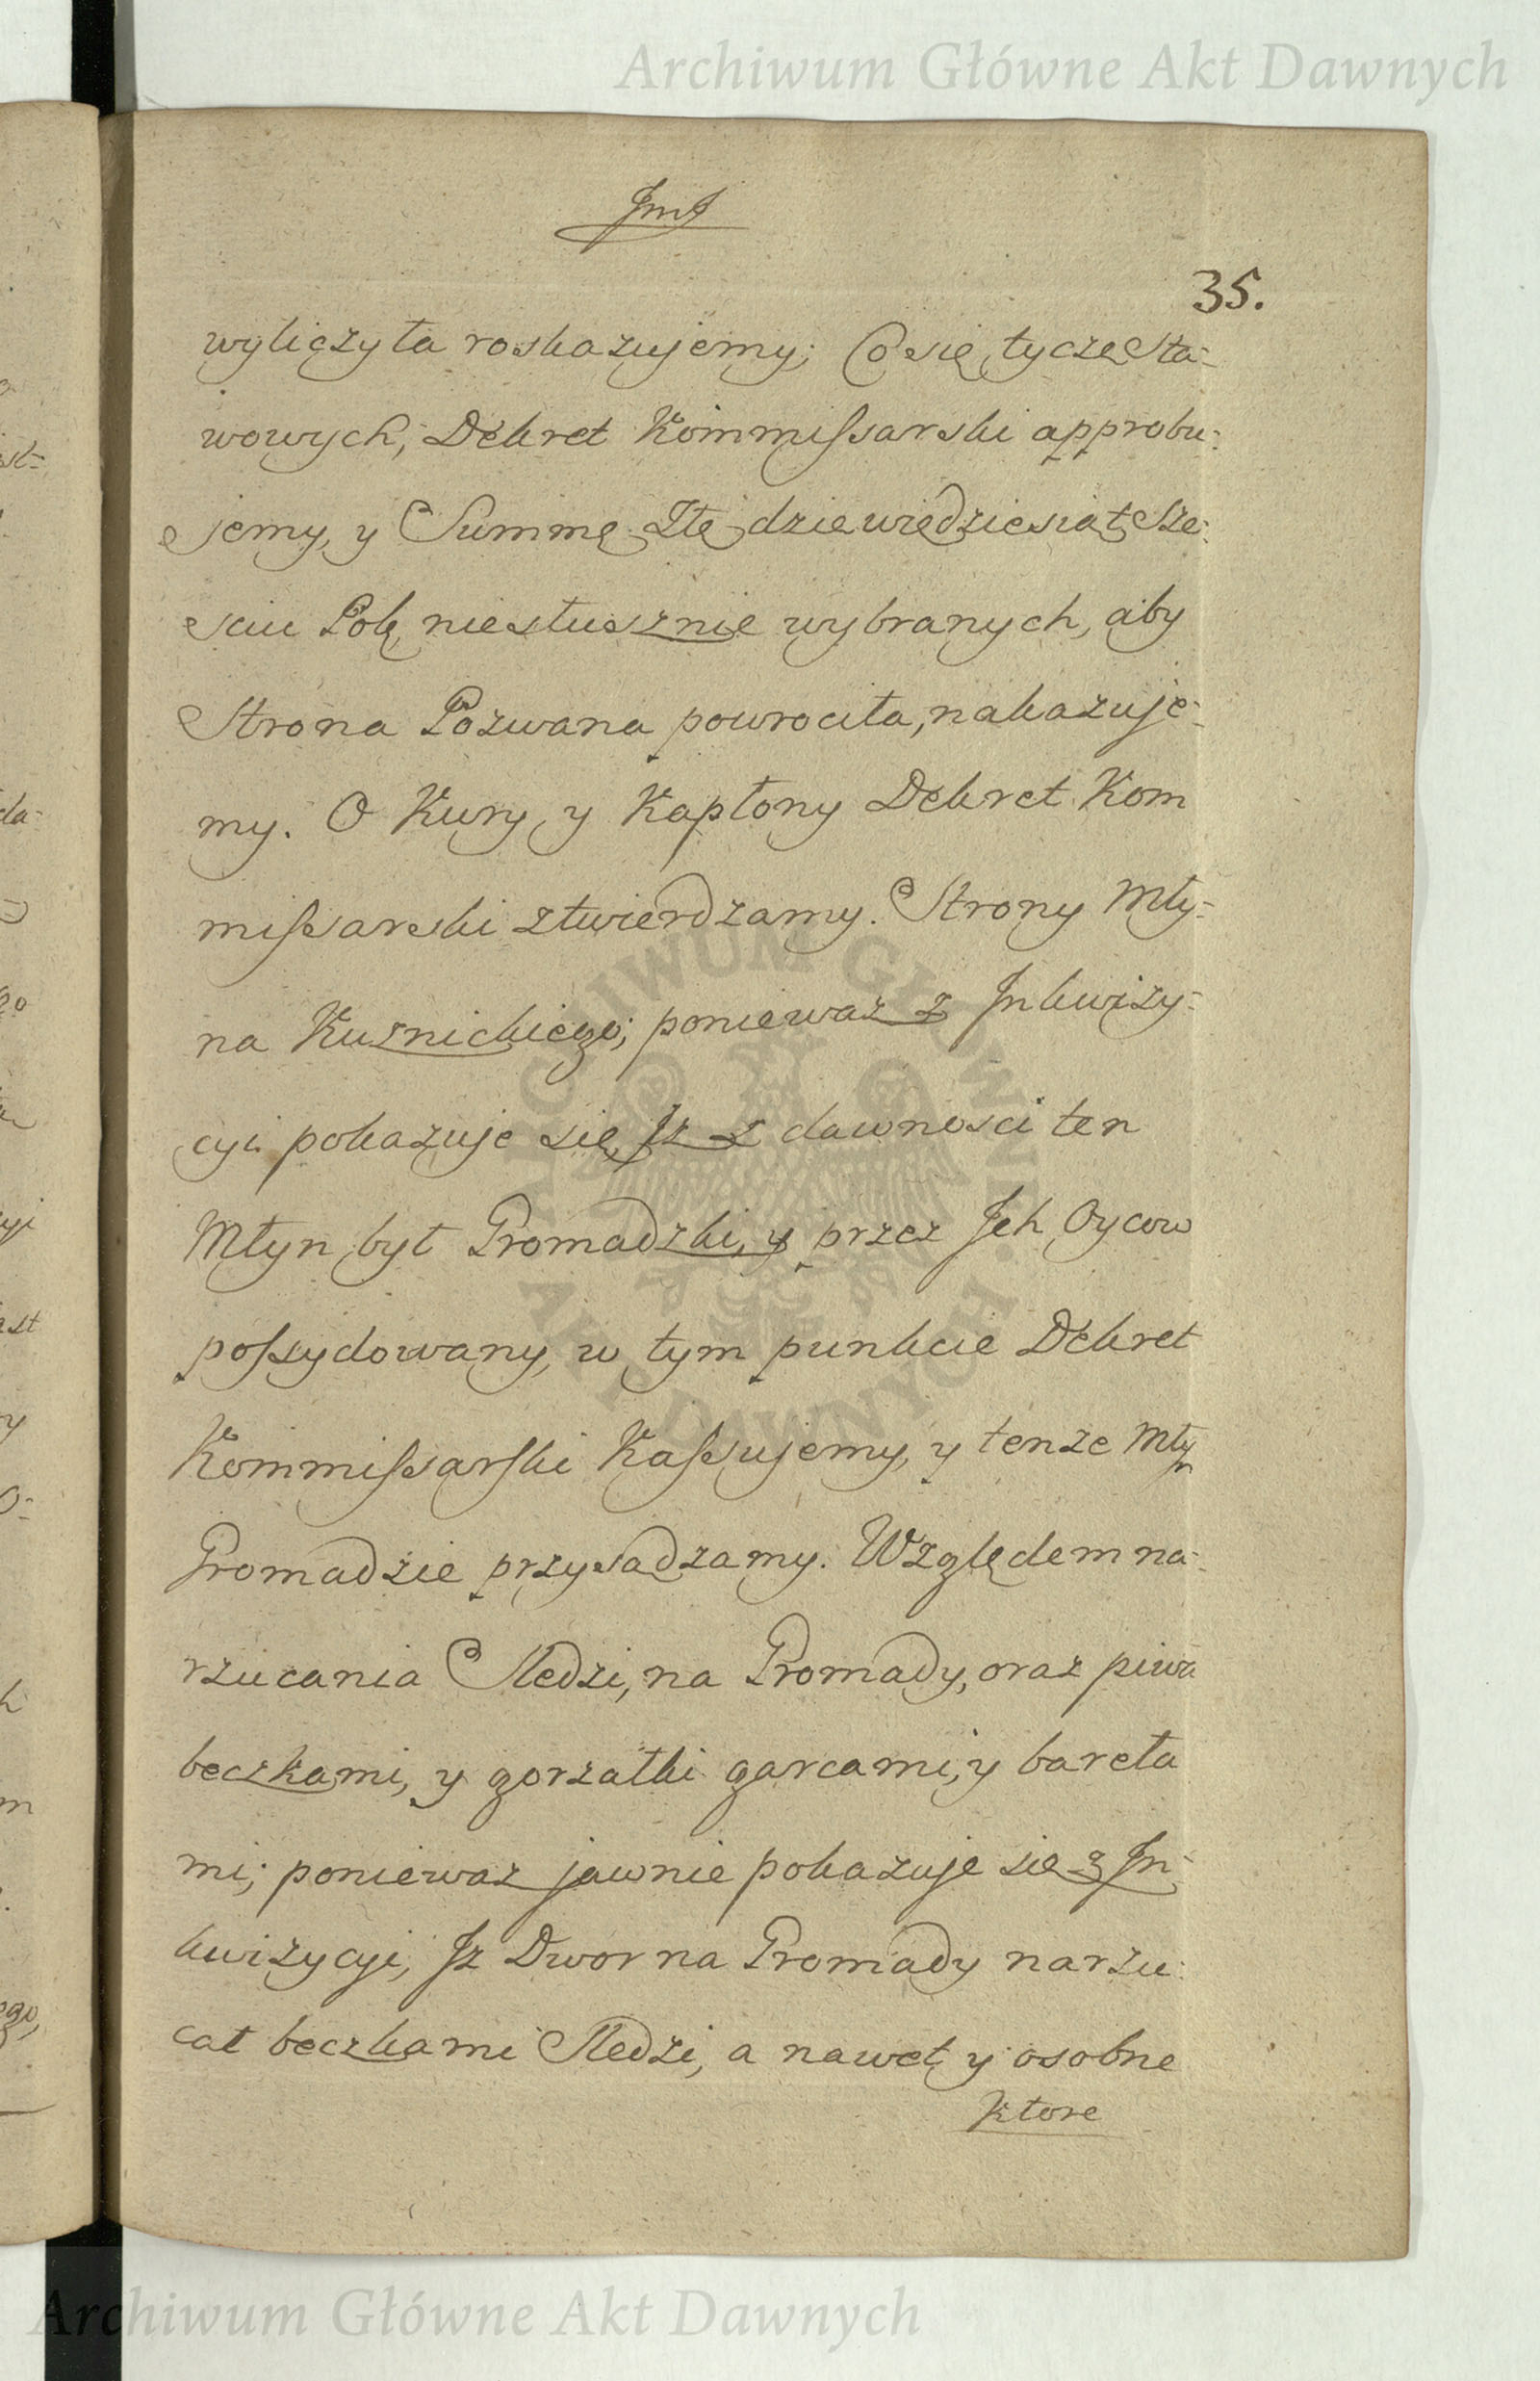 Archiwum Główne Akt Dawnych
JmJ
35.
wyliczyła roskazujemy; Co się tycze Sta-
wowych, Dekret Kommissarski approbu-
jemy, y Summę Złt dziewiędziesiąt Sze-
sciu Pol: niesłusznie wybranych, aby
Strona Pozwana powrociła, nakazuje-
my. O Kury y Kapłony Dekret Kom
missarski ztwierdzamy. Strony Mły-
na Kuznickiego; poniewaz z Inkwizy-
cyi pokazuje się, Jz z dawnosci ten
Młyn był Gromadzki, y przez Jch Oycow
possydowany, w tym punkcie Dekret
Kommissarski Kassujemy, y tenze Młyn
Gromadzie przysądzamy. Względem na-
rzucania Sledzi, na Gromady, oraz piwa
beczkami, y gorzałki garcami, y bareła
mi; poniewaz jawnie pokazuje się z In-
kwizycyi, Jz Dwor na Gromady narzu-
cał beczkami Sledzi, a nawet y osobne
ktore
Archiwum Główne Akt Dawnych